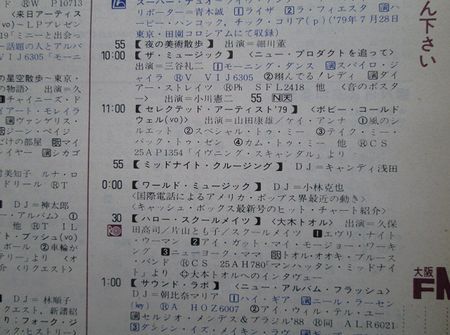 スーパー・デュオ
®W P10713
リポーター=青木誠 ①ラ・フィエスタ
<来日アーティス
ハービー・ハンコック、チック・コリア(p)('79年7月28日
(vo)―LPプレゼン
東京・田園コロシアムにて収録)
19「ミニーと出会っ
55【夜の美術散歩】出演=細川董
話題の人とアルバ
10:00【ザ・ミュージック】<ニュー・プロダクトを追って>
VIJ6305「モーニ
出演=三谷礼二 ①モーニング・ダンス スパイロ・ジ
ャイラ ®V VIJ6305 ②翔んでる!レディ
ア・ストレイツ ®Ph SFL2418 他 <音のポスタ
の星空散歩~東京・
ー> 出演=小川憲二 55 N天
の物語】 出演=久
11:00【セレクテッド・アーティスト'79】<ボビー・コールド
チャイニーズ・ド
ウェル(vo)> 出演=山田康雄/ケイ・アンナ ①風のシ
イアート・モレイラ
ルエット ②スペシャル・トゥ・ミー ③テイク・ミー・
ヴァンゲリス・
バック・トゥ・ゼン ④カム・トゥ・ミー 他 ®CS
ジーン・ペイジ
25AP1354「イヴニング・スキャンダル」より
だけの部屋
55【ミッドナイト・クルージング】DJ=キャンディ浅田
シカゴ
0:00【ワールド・ミュージック】DJ=小林克也
君美知子 ルナ・ロ
<国際電話によるアメリカ・ポップス界最近の動き>
ドリール ®T
<キャッシュ・ボックス最新号のヒット・チャート紹介>
DJ=神太郎
30【ハロー・スクールメイツ】<大木トオル> 出演=久保
・アルバム】①
田高司/片山とも子/スクールメイツ ①エヴリ・ナイト
他 ®T IL
・ウーマン ②アイ・ガット・マイ・モージョー・ワーキ
ト・プッシュ(vo)
ング ③ニューヨーク・ママ トオル・オオキ・ブルース
ボール ②車輪が
・バンド ®CS 25AH780「マンハッタン・ミッドナイ
ト」より ✩大木トオルへのインタヴュー
リクエスト】
1:00【サウンド・ラボ】<ニュー・アルバム・フラッシュ>
DJ=林順子
DJ=朝比奈マリア ①ハイ・ギア ニール・ラーセン
クエスト、新譜紹
(key) ®A HOZ6007 ②アイ・ウィル・テル・ユー
セルジオ・メンデス&ブラジル'88 ®同 ALR6021
③ダンシン・イズ・メイキン・
ん下さい
大阪
FM